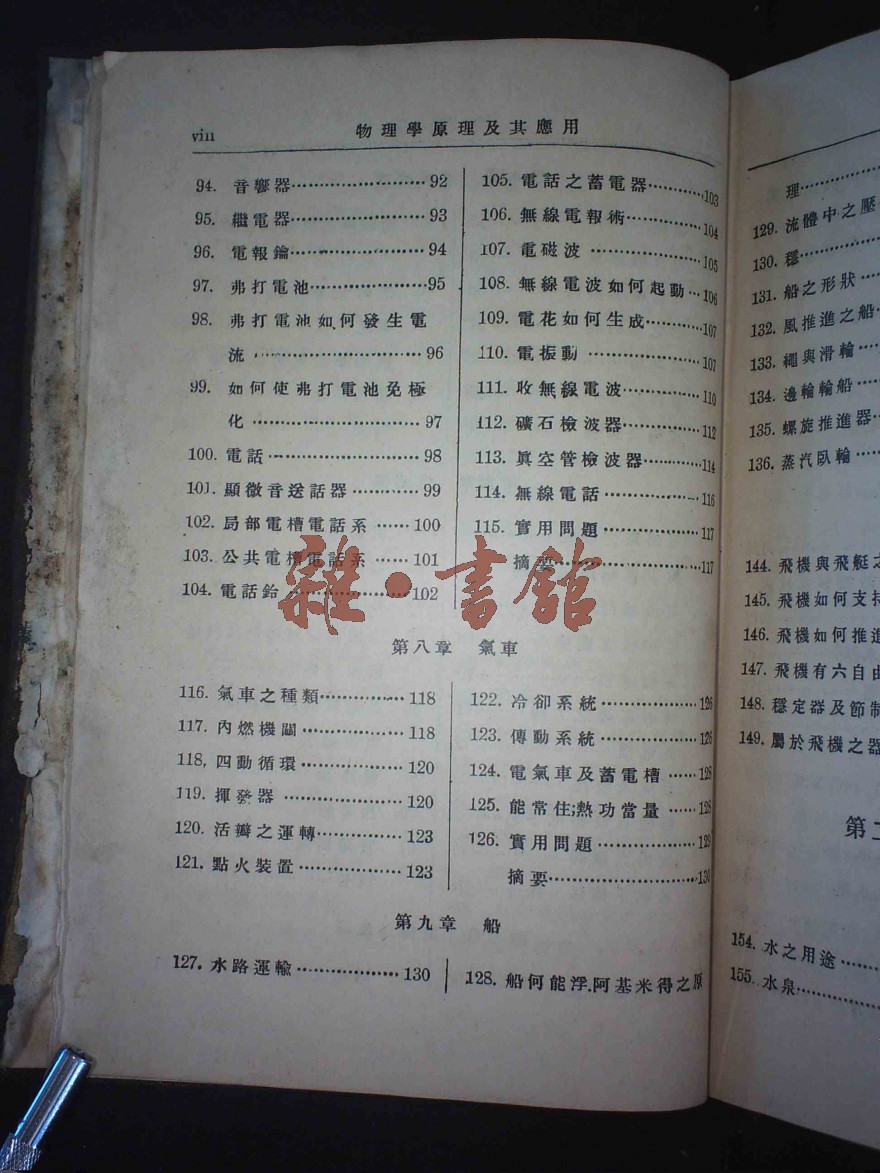 viii 物理學原理及其應用
94. 音響器……………………92
95. 繼電器……………………93
96. 電報鑰……………………94
97. 弗打電池…………………95
98. 弗打電池如何發生電
流……………………………96
99. 如何使弗打電池免極
化……………………………97
100. 電話……………………98
101. 顯微音送話器…………99
102. 局部電槽電話系……100
103. 公共電槽電話系……101
104. 電話鈴………………102
105. 電話之蓄電器…………103
106. 無線電報術……………104
107. 電磁波…………………105
108. 無線電波如何起動…106
109. 電花如何生成…………107
110. 電振動…………………107
111. 收無線電波……………110
112. 礦石檢波器……………112
113. 眞空管檢波器…………114
114. 無線電話………………116
115. 實用問題………………117
摘要…………………………117
雜·書館
第八章 氣車
116. 氣車之種類……………118
117. 內燃機關………………118
118. 四動循環………………120
119. 揮發器…………………120
120. 活瓣之運轉……………123
121. 點火裝置………………123
122. 冷卻系統………………126
123. 傳動系統………………126
124. 電氣車及蓄電槽……128
125. 能常住;熱功當量……128
126. 實用問題………………129
摘要…………………………130
第九章 船
127. 水路運輸………………130
128. 船何能浮.阿基米得之原
理………
129. 流體中之壓
130. 穩……
131. 船之形狀……
132. 風推進之船…
133. 繩與滑輪……
134. 邊輪輪船……
135. 螺旋推進器…
136. 蒸汽臥輪……
144. 飛機與飛艇之
145. 飛機如何支持
146. 飛機如何推進
147. 飛機有六自由
148. 穩定器及節制
149. 屬於飛機之器
第
154. 水之用途……
155. 水泉…………